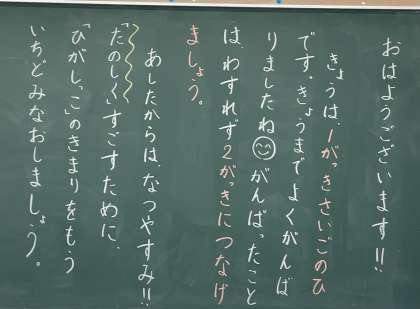 おはようございます!!
きょうは、1がっきさいごのひ
です。きょうまでよくがんば
りましたね☺がんばったこと
は、わすれず2がっきにつなげ
ましょう。
あしたからは、なつやすみ!!
「たのしく」すごすために、
「ひがしっこ」のきまりをもう
いちどみなおしましょう。